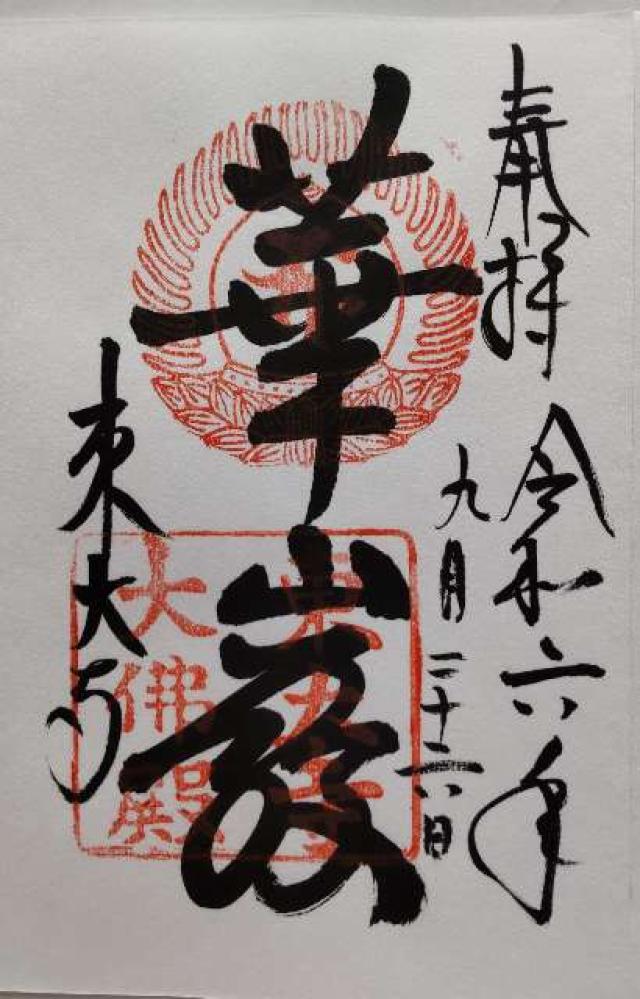 奉拝
令和六年
九月二十六日
華嚴
東大寺
東大寺
大佛殿